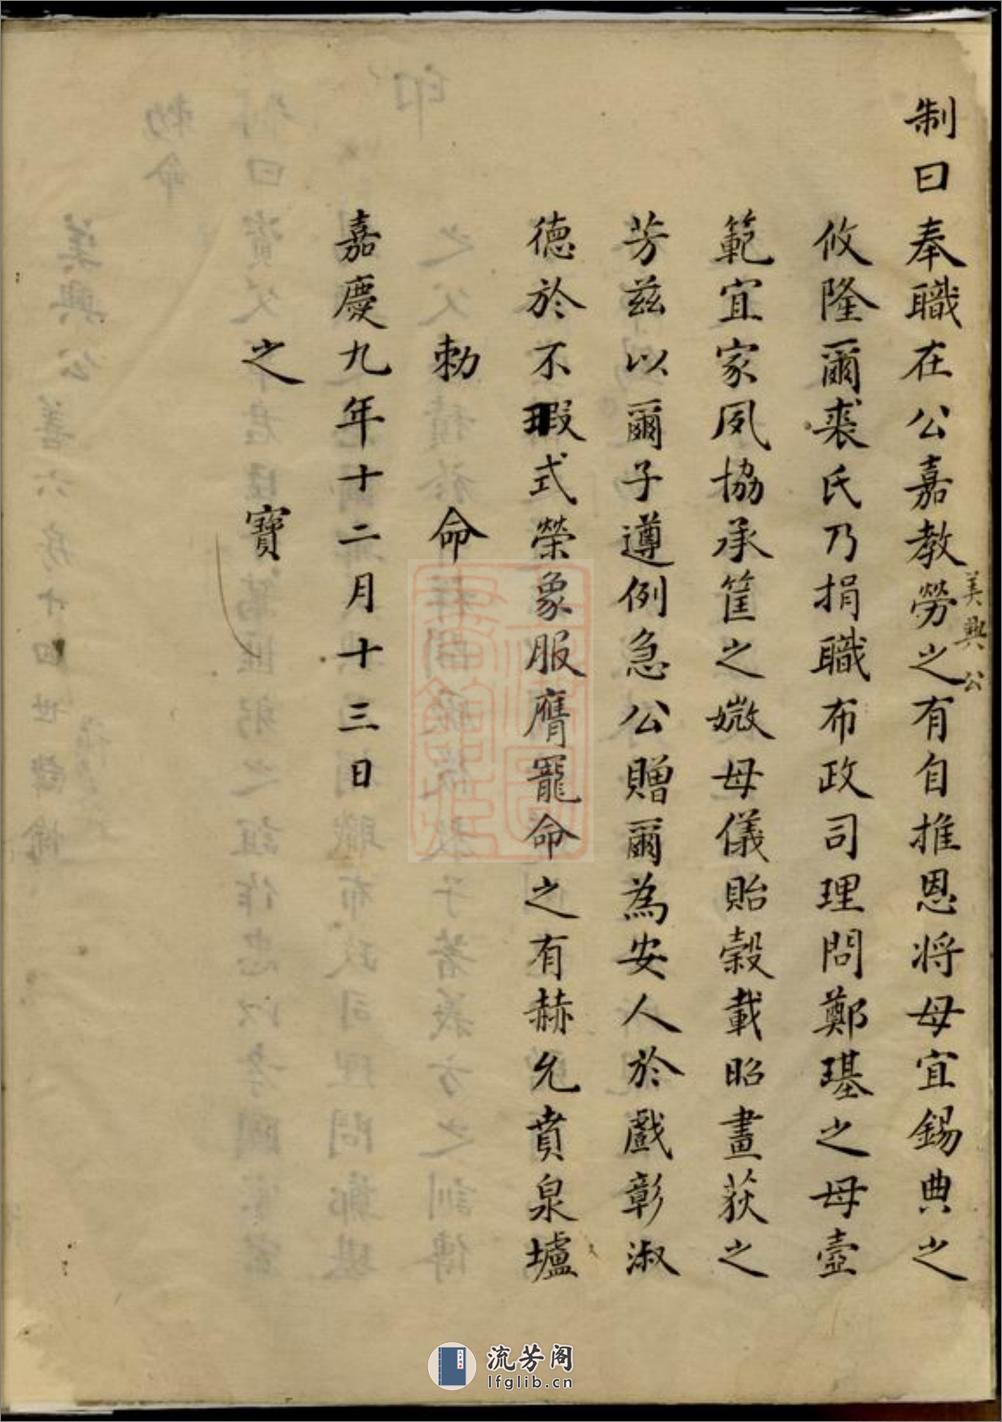 制曰奉職在公嘉教勞之有自推恩將母宜錫典之
美興公
攸隆爾裘氏乃捐職布政司理問鄭璂之母壼
範宜家夙協承筐之媺母儀貽穀載昭畫荻之
芳兹以爾子遵例急公贈爾為安人於戲彰淑
德於不瑕式榮象服膺寵命之有赫允賁泉壚
勅命
嘉慶九年十二月十三日
之寶
流芳阁
lfglib.cn